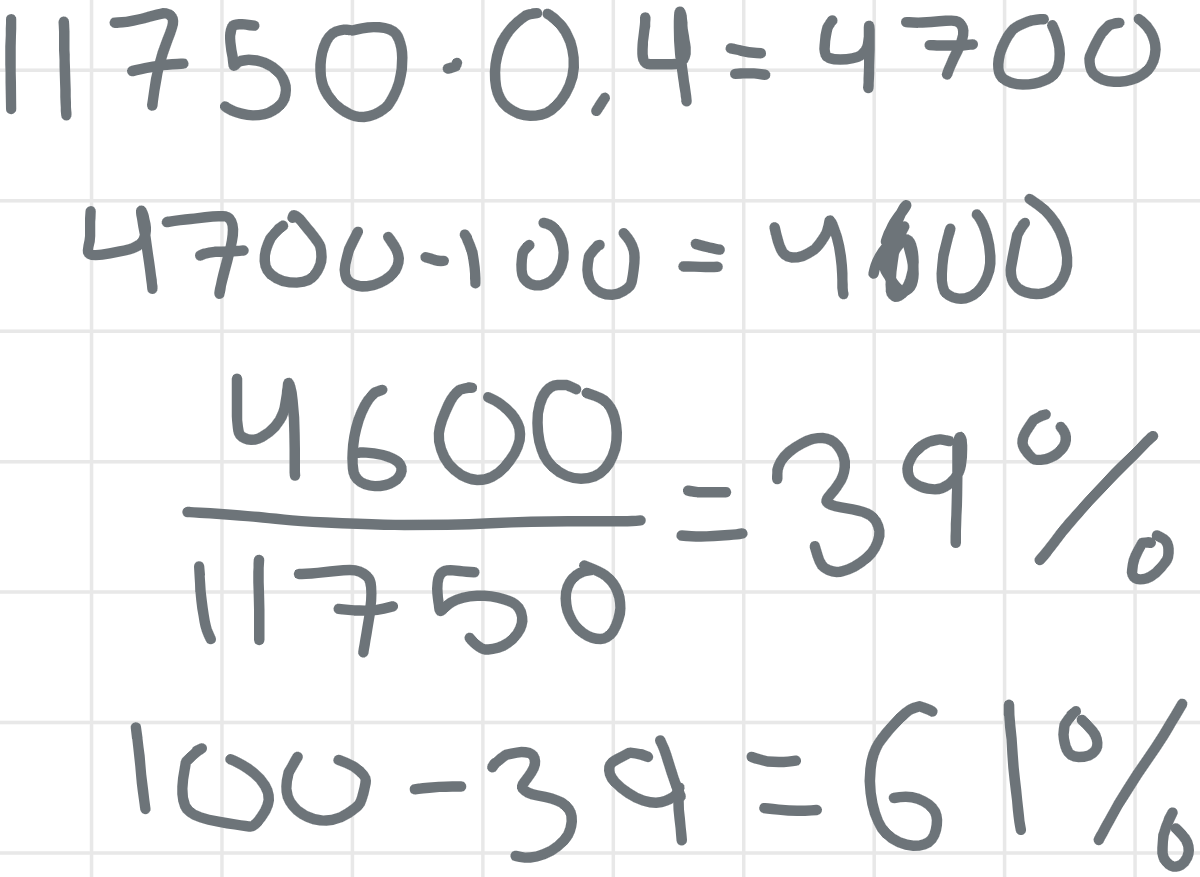 11750 · 0.4 = 4700
4700 - 100 = 4600
4600
11750
= 39%
100 - 39 = 61%